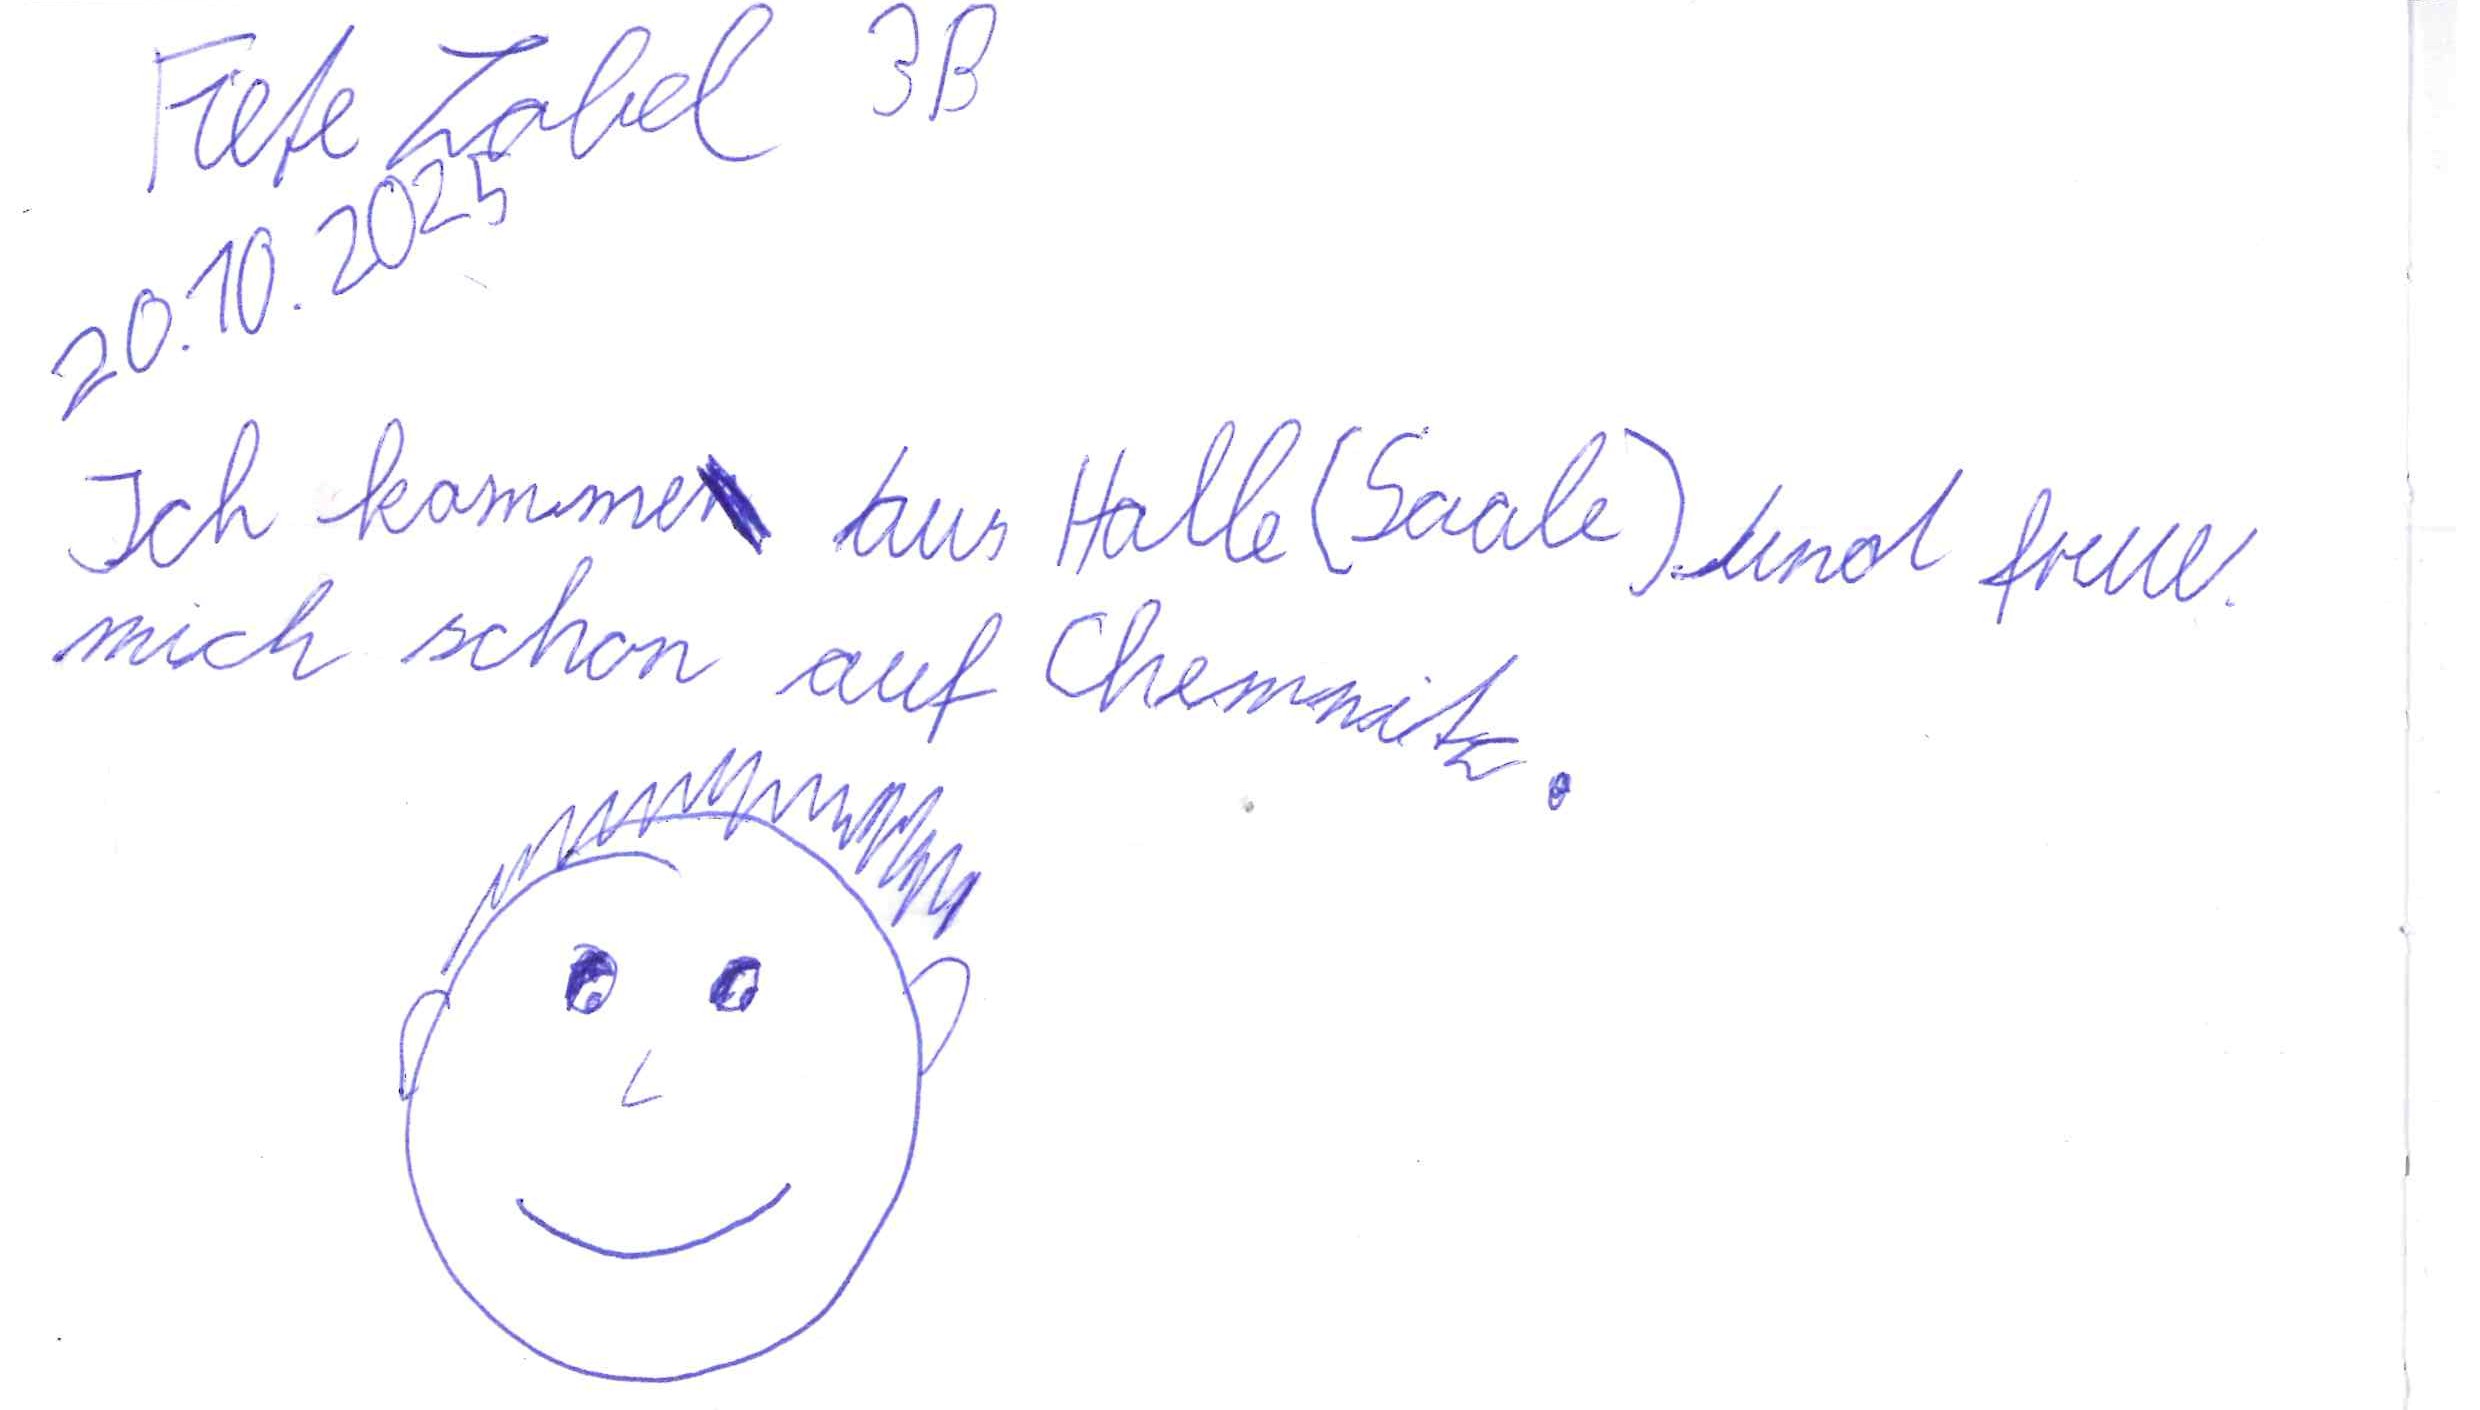 Fiete Zabel 3B
20.10.2025
Ich komme aus Halle (Saale) und freue
mich schon auf Chemnitz.